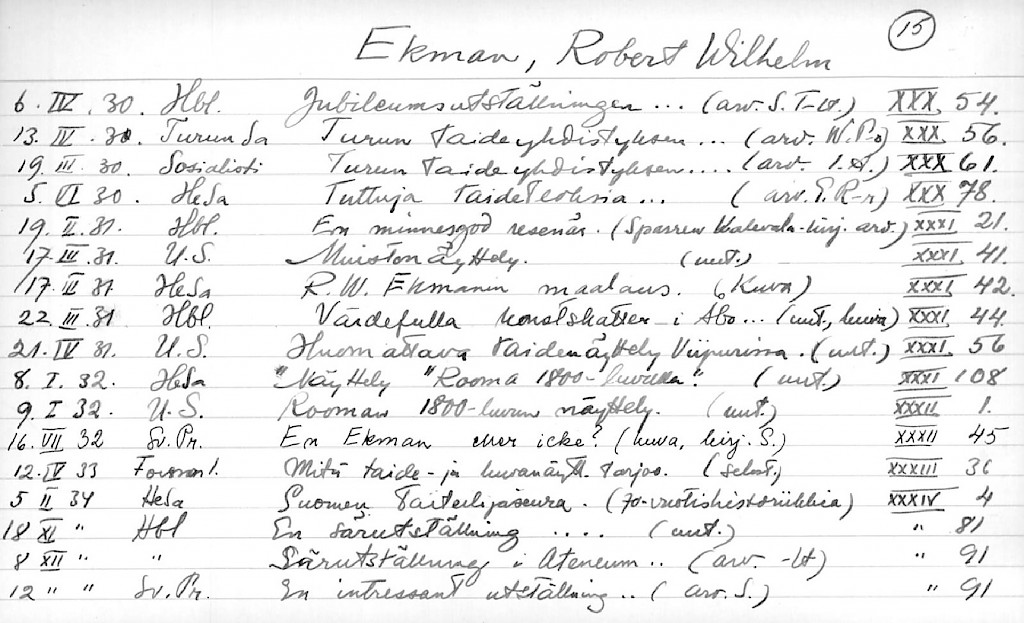 15
Ekman, Robert Wilhelm
6. IV. 30. Hbl. Jubileumsutställningen ... (arv. S. T-lt.) XXX. 54.
13. IV. 30. Turun Sa Turun taideyhdistyksen ... (arv. W. P-o) XXX 56.
19. III. 30. Sosialisti Turun taideyhdistyksen .... (arv. I. A.) XXX 61.
5. VI 30. HeSa Tuttuja taideteoksia ... (arv. E. R-r) XXX 78.
19. II. 31. Hbl. En minnesgod resenär. (Sparren Kalevala-kirj. arv.) XXXI 21.
17. III. 31. U.S. Muistonäyttely. (uut.) XXXI. 41.
17. III 31 HeSa R.W. Ekmanin maalaus. (Kuva) XXXI. 42.
22. III. 31 Hbl. Värdefulla konstskatter i Åbo... (uut., kuva) XXXI. 44
21. IV 31. U.S. Huomattava taidenäyttely Viipurissa. (uut.) XXXI. 56
8. I. 32. HeSa "Näyttely "Rooma 1800-luvulla". (uut.) XXXI 108
9. I 32. U.S. Rooman 1800-luvun näyttely. (uut.) XXXII 1.
16. VII 32 Sv. Pr. En Ekman eller icke? (kuva, kirj. S.) XXXII 45
12. IV 33 Forssan l. Mitä taide- ja kuvanäytt. tarjoo. (selost.) XXXIII 36
5 II 34 HeSa Suomen Taiteilijaseura. (70-vuotishistoriikkia) XXXIV 4
18 XI " Hbl En särutställning .... (uut.) " 81
8 XII " " Särutställning i Ateneum.. (arv. -lt) " 91
12 " " Sv. Pr. En intressant utställning.. (arv. S.) " 91